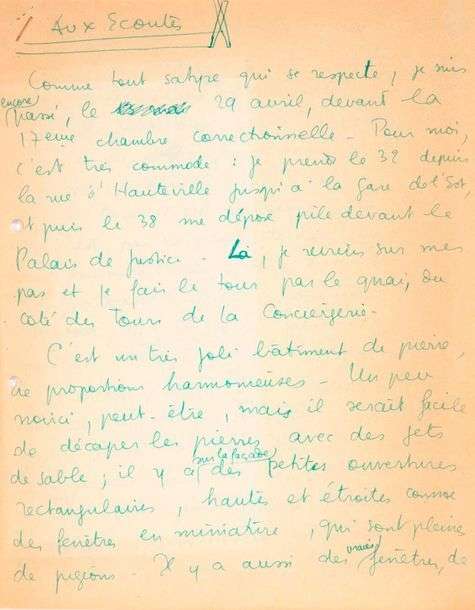 Aux Ecoutes
Comme tout satyre qui se respecte, je suis
encore
passé, le 29 avril, devant la
17eme chambre correctionnelle - Pour moi,
c'est très commode : je prends le 32 depuis
la rue d'Hauteville jusqu'à la gare de l'Est
et puis le 38 me dépose pile devant le
Palais de Justice - Là, je reviens sur mes
pas et je fais le tour par le quai, du
coté des Tours de la Conciergerie -
C'est un très joli bâtiment de pierre,
de proportions harmonieuses - Un peu
noirci, peut-être, mais il serait facile
de décaper les pierres avec des jets
sur la façade
de sable ; il y a des petites ouvertures
rectangulaires, hautes et étroites comme
des fenêtres en miniature, qui sont pleines
vraies
de pigeons. Il y a aussi des fenêtres, de